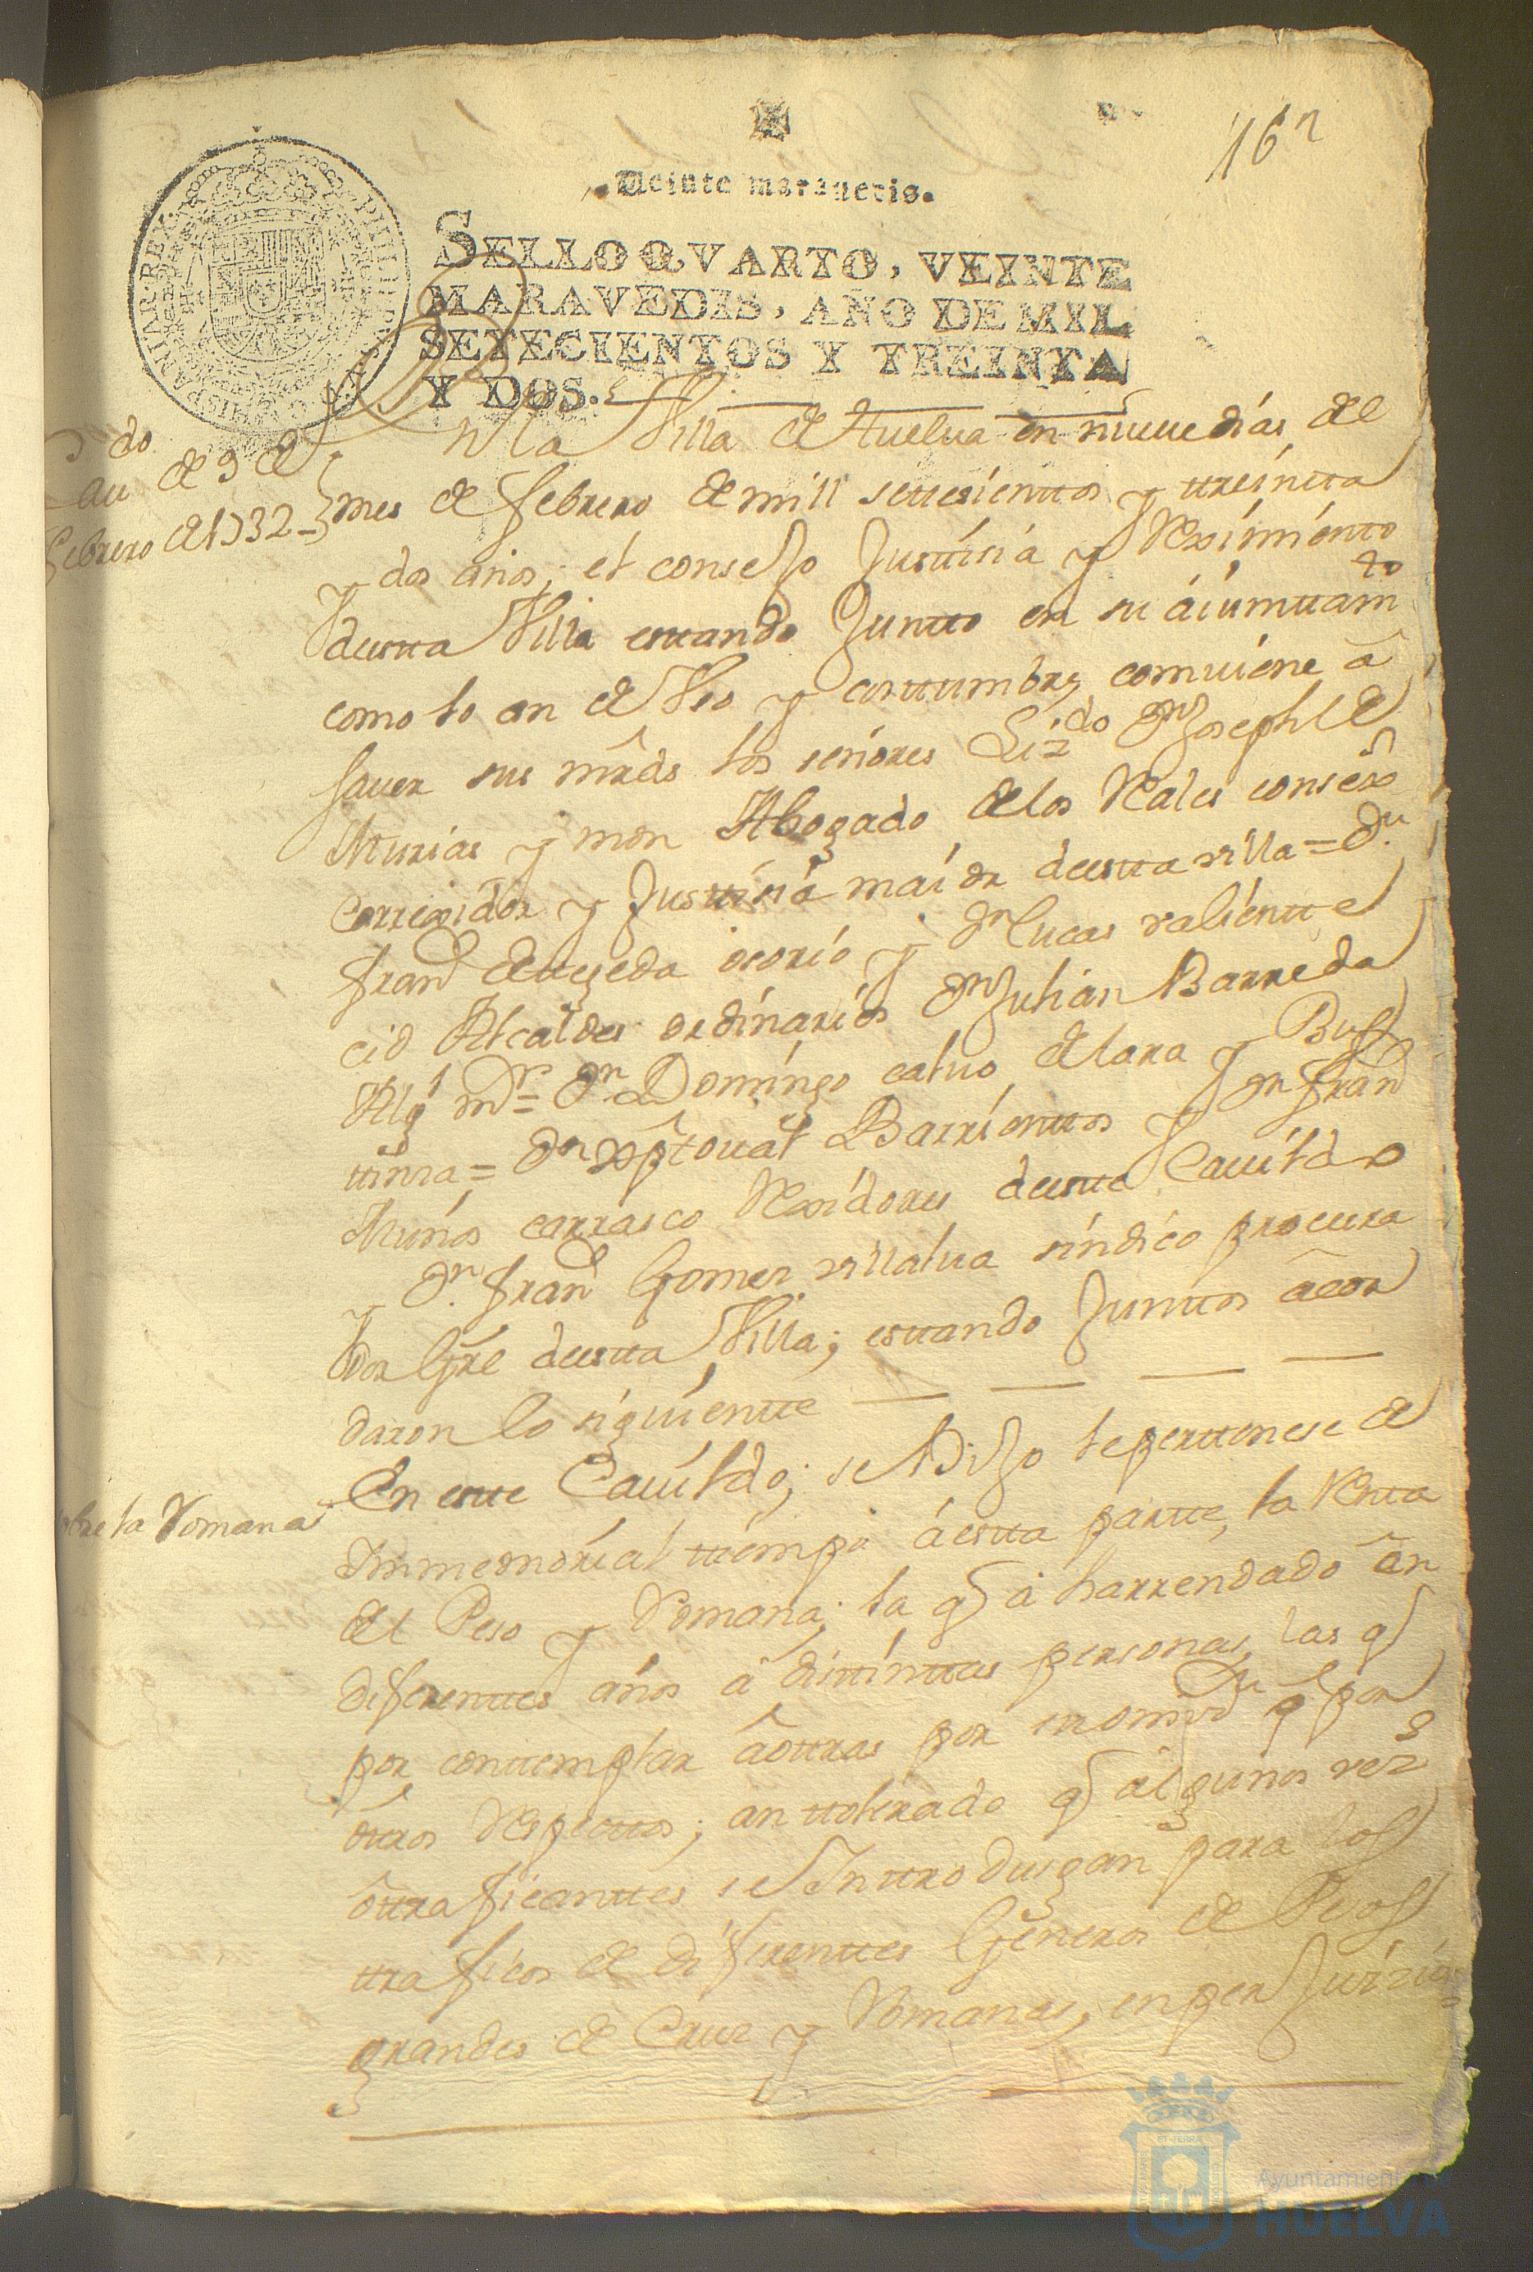 162
Veinte marauedis.
SELLO QVARTO, VEINTE
MARAVEDIS, AÑO DE MIL
SETECIENTOS Y TREINTA
Y DOS.
PHILIPPUS V D G HISPANIAR REX
do
Cau de 9 de
febrero de 1732
En la Villa de Huelua en nueue días del
mes de febrero de mill settesienttos y ttreintta
y dos años; el consejo Justtisia y Reximiento
desta Villa esttando Juntto en su aiumttamto
como lo an de Vso y costtumbre comviene â
sauer sus mrds los señores Lizdo Dn Joseph de
Murias y mon Abogado de los Rales consejos
Correxidor y Justtisiâ maior destta villa = Dn
Franco de ttegeda osorio y Dn lucas valientte
cid Alcaldes ordinarios Dn Julian Barreda
Alg mr = Dn Domingo calvo de lara y Bus
ttinza = Dn xptoual Barrienttos y Dn Franco
Munos carrasco Rexidores destte Cauildo
y Dn Franco Gomez villalua sindico procura
dor Gral destta Villa; esttando Junttos acor
daron lo siguientte
sobre la Romana
En estte Cauildo; se Dijo le perttenese de
Inmemorial ttiempo â estta partte, la Rentta
del Peso y Romana; la q a harrendado ên
diferenttes años â disttinttas personas, las q
por conttemplar âottras por enomisd q por
ôttros Respecttos; an ttolerado q algunos vezos
ôttraficanttes se Inttrodusgan para los
ttraficos de diferenttes Géneros de Pesos
grandes de Cruz y Romanas, en perJuizio
Ayuntamiento de
HUELVA